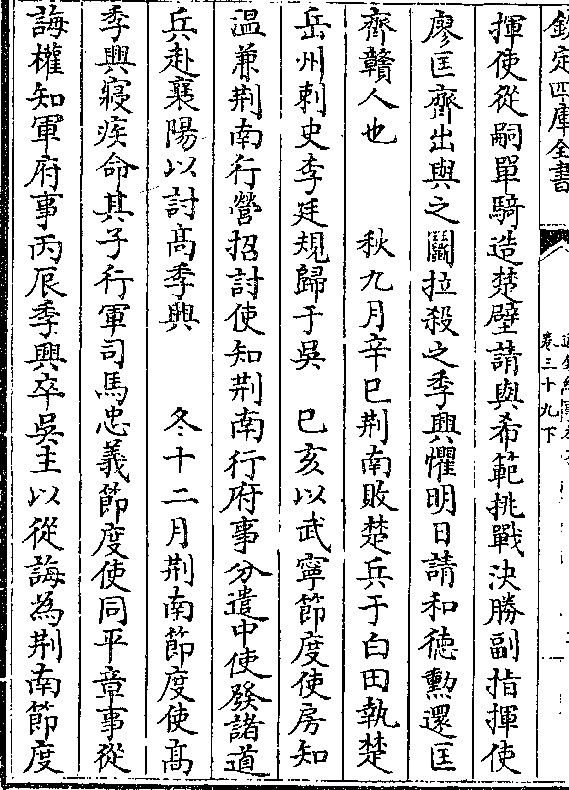 欽定四庫全書
卷三十九下
揮使從嗣單騎造楚壁請與希範挑戰決勝副指揮使
廖匡齊出與之鬬拉殺之季興懼明日請和德勲還匡
齊贛人也　秋九月辛巳荆南敗楚兵于白田執楚
岳州刺史李廷規歸于吳　己亥以武寧節度使房知
温兼荆南行營招討使知荆南行府事分遣中使發諸道
兵赴襄陽以討髙季興　冬十二月荆南節度使髙
季興寢疾命其子行軍司馬忠義節度使同平章事從
誨權知軍府事丙辰季興卒吳主以從誨為荆南節度